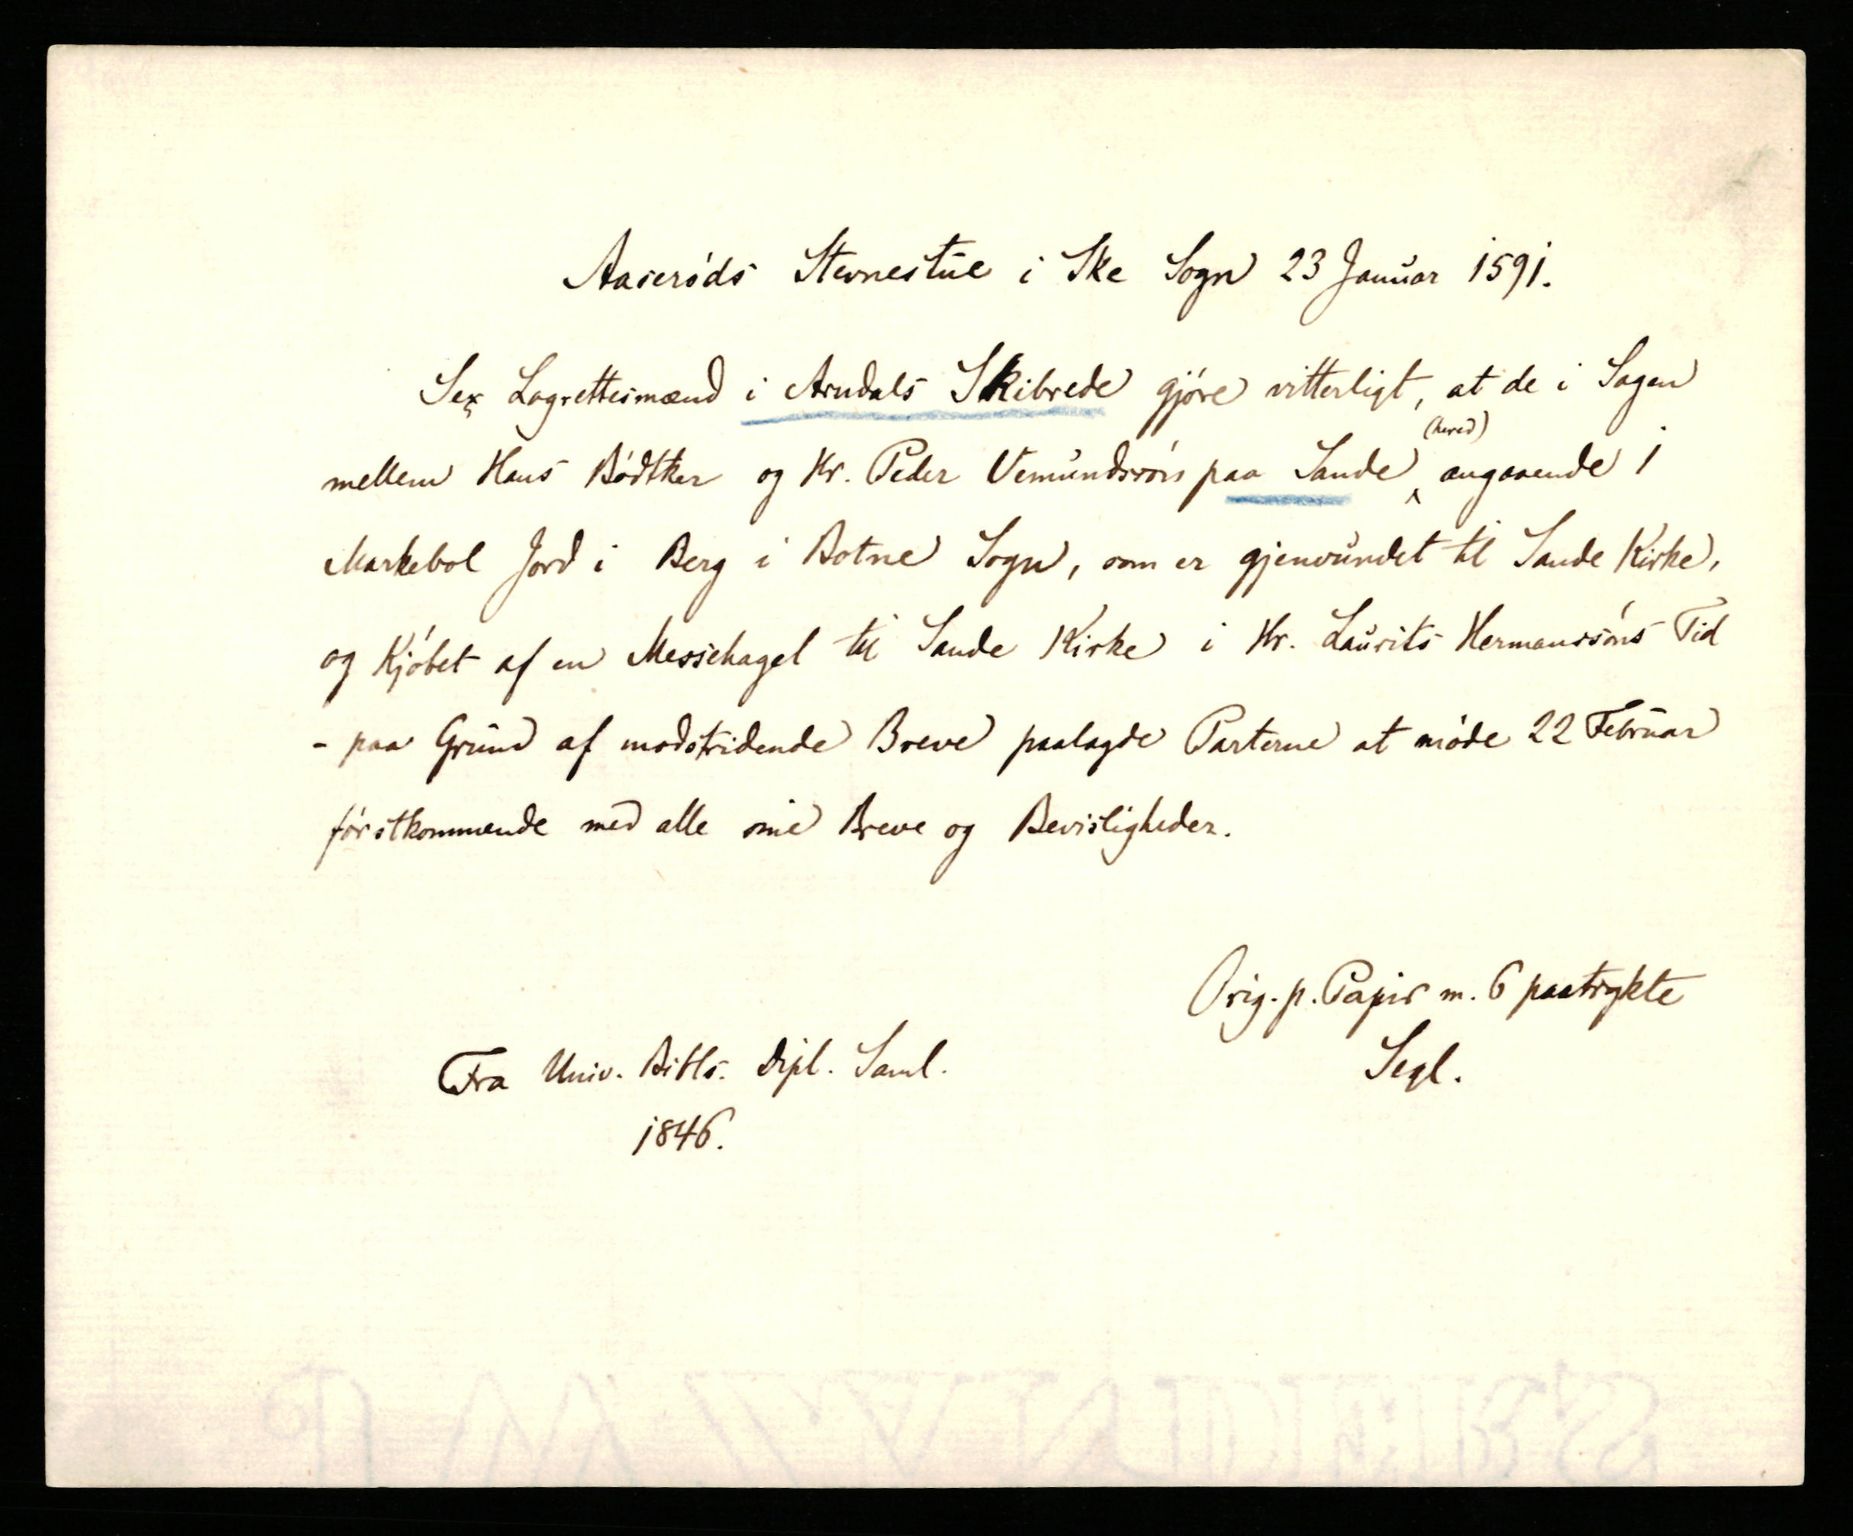 Aaserøds Stevnestue i Ske Sogn 23 Januar 1591.
Sex Lagrettesmænd i Arndals Skibrede gjøre vitterligt, at de i Sagen
mellem Hans Bødtker og Hr. Peder Vemundssøn paa Sande (herred) angaaende 1
Markebol Jord i Berg i Botne Sogn, som er gjenvundet til Sande Kirke,
og Kjøbet af en Messehagel til Sande Kirke i Hr. Laurits Hermanssøns Tid
- paa Grund af modstridende Breve paalagde Parterne at møde 22 Februar
førstkommende med alle sine Breve og Bevisligheder.
Orig. p. Papir m. 6 paatrykte
Segl.
Fra Univ. Bibls. Dipl. Saml.
1846.